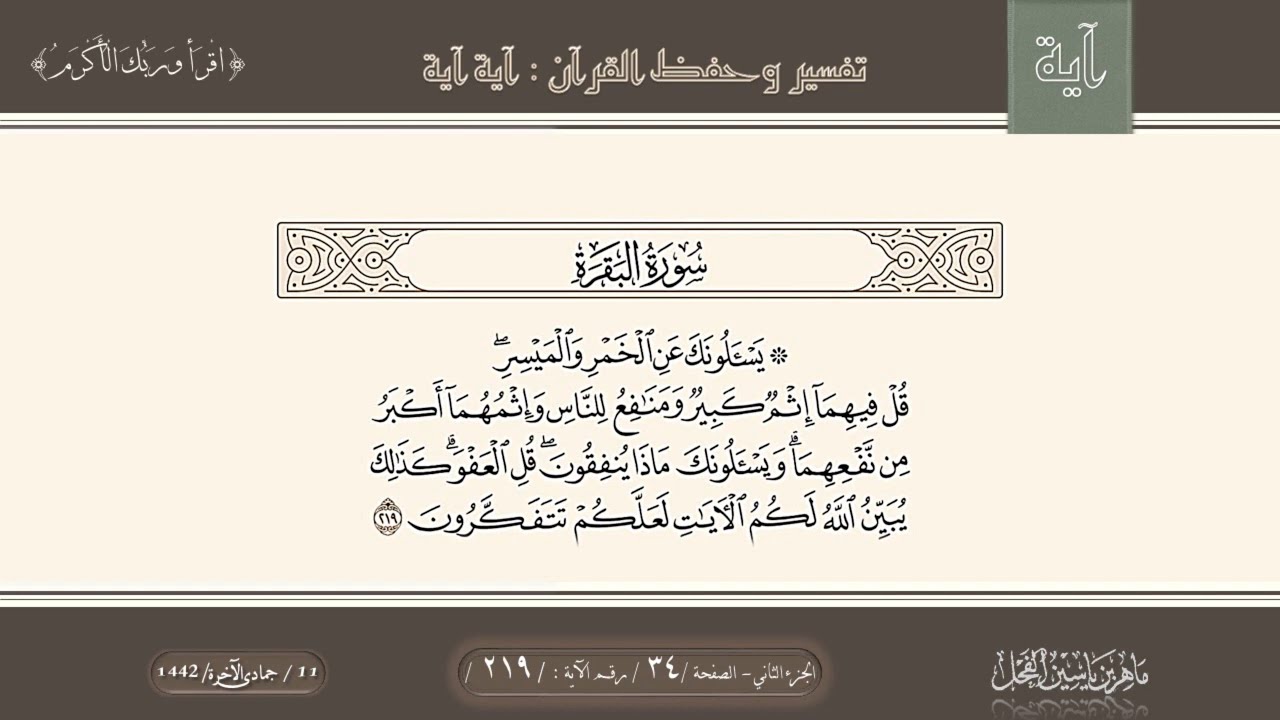 آية
تفسير وحفظ القرآن : آية آية
﴿اقْرَأْ وَرَبُّكَ الْأَكْرَمُ﴾
سُورَةُ البَقَرَةِ
۞ يَسْـَٔلُونَكَ عَنِ ٱلْخَمْرِ وَٱلْمَيْسِرِۖ
قُلْ فِيهِمَآ إِثْمٌ كَبِيرٌ وَمَنَٰفِعُ لِلنَّاسِ وَإِثْمُهُمَآ أَكْبَرُ
مِن نَّفْعِهِمَاۗ وَيَسْـَٔلُونَكَ مَاذَا يُنفِقُونَۖ قُلِ ٱلْعَفْوَۗ كَذَٰلِكَ
يُبَيِّنُ ٱللَّهُ لَكُمُ ٱلْـَٔايَٰتِ لَعَلَّكُمْ تَتَفَكَّرُونَ ٢١٩
ماهر بن ياسين الفحل
الجزء الثاني - الصفحة / ٣٤ / رقم الآية : / ٢١٩ /
11 / جمادى الآخرة / 1442